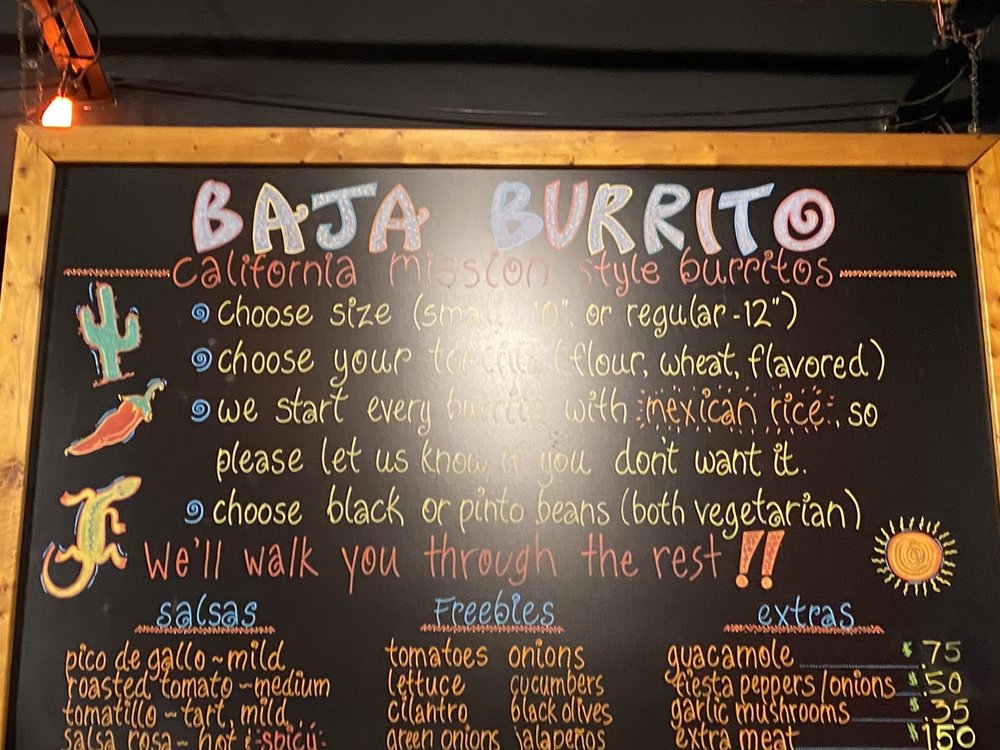 BAJA BURRITO
California mission style burritos
choose size (small-10", or regular-12")
choose your tortilla (flour, wheat, flavored)
we start every burrito with mexican rice, so
please let us know if you don't want it.
choose black or pinto beans (both vegetarian)
we'll walk you through the rest!!
salsas
pico de gallo~mild
roasted tomato~medium
tomatillo~tart, mild
salsa rosa~hot & spicy
Freebies
tomatoes onions
lettuce cucumbers
cilantro black olives
green onions jalapeños
extras
guacamole $.75
fiesta peppers/onions $.50
garlic mushrooms $.35
extra meat $150